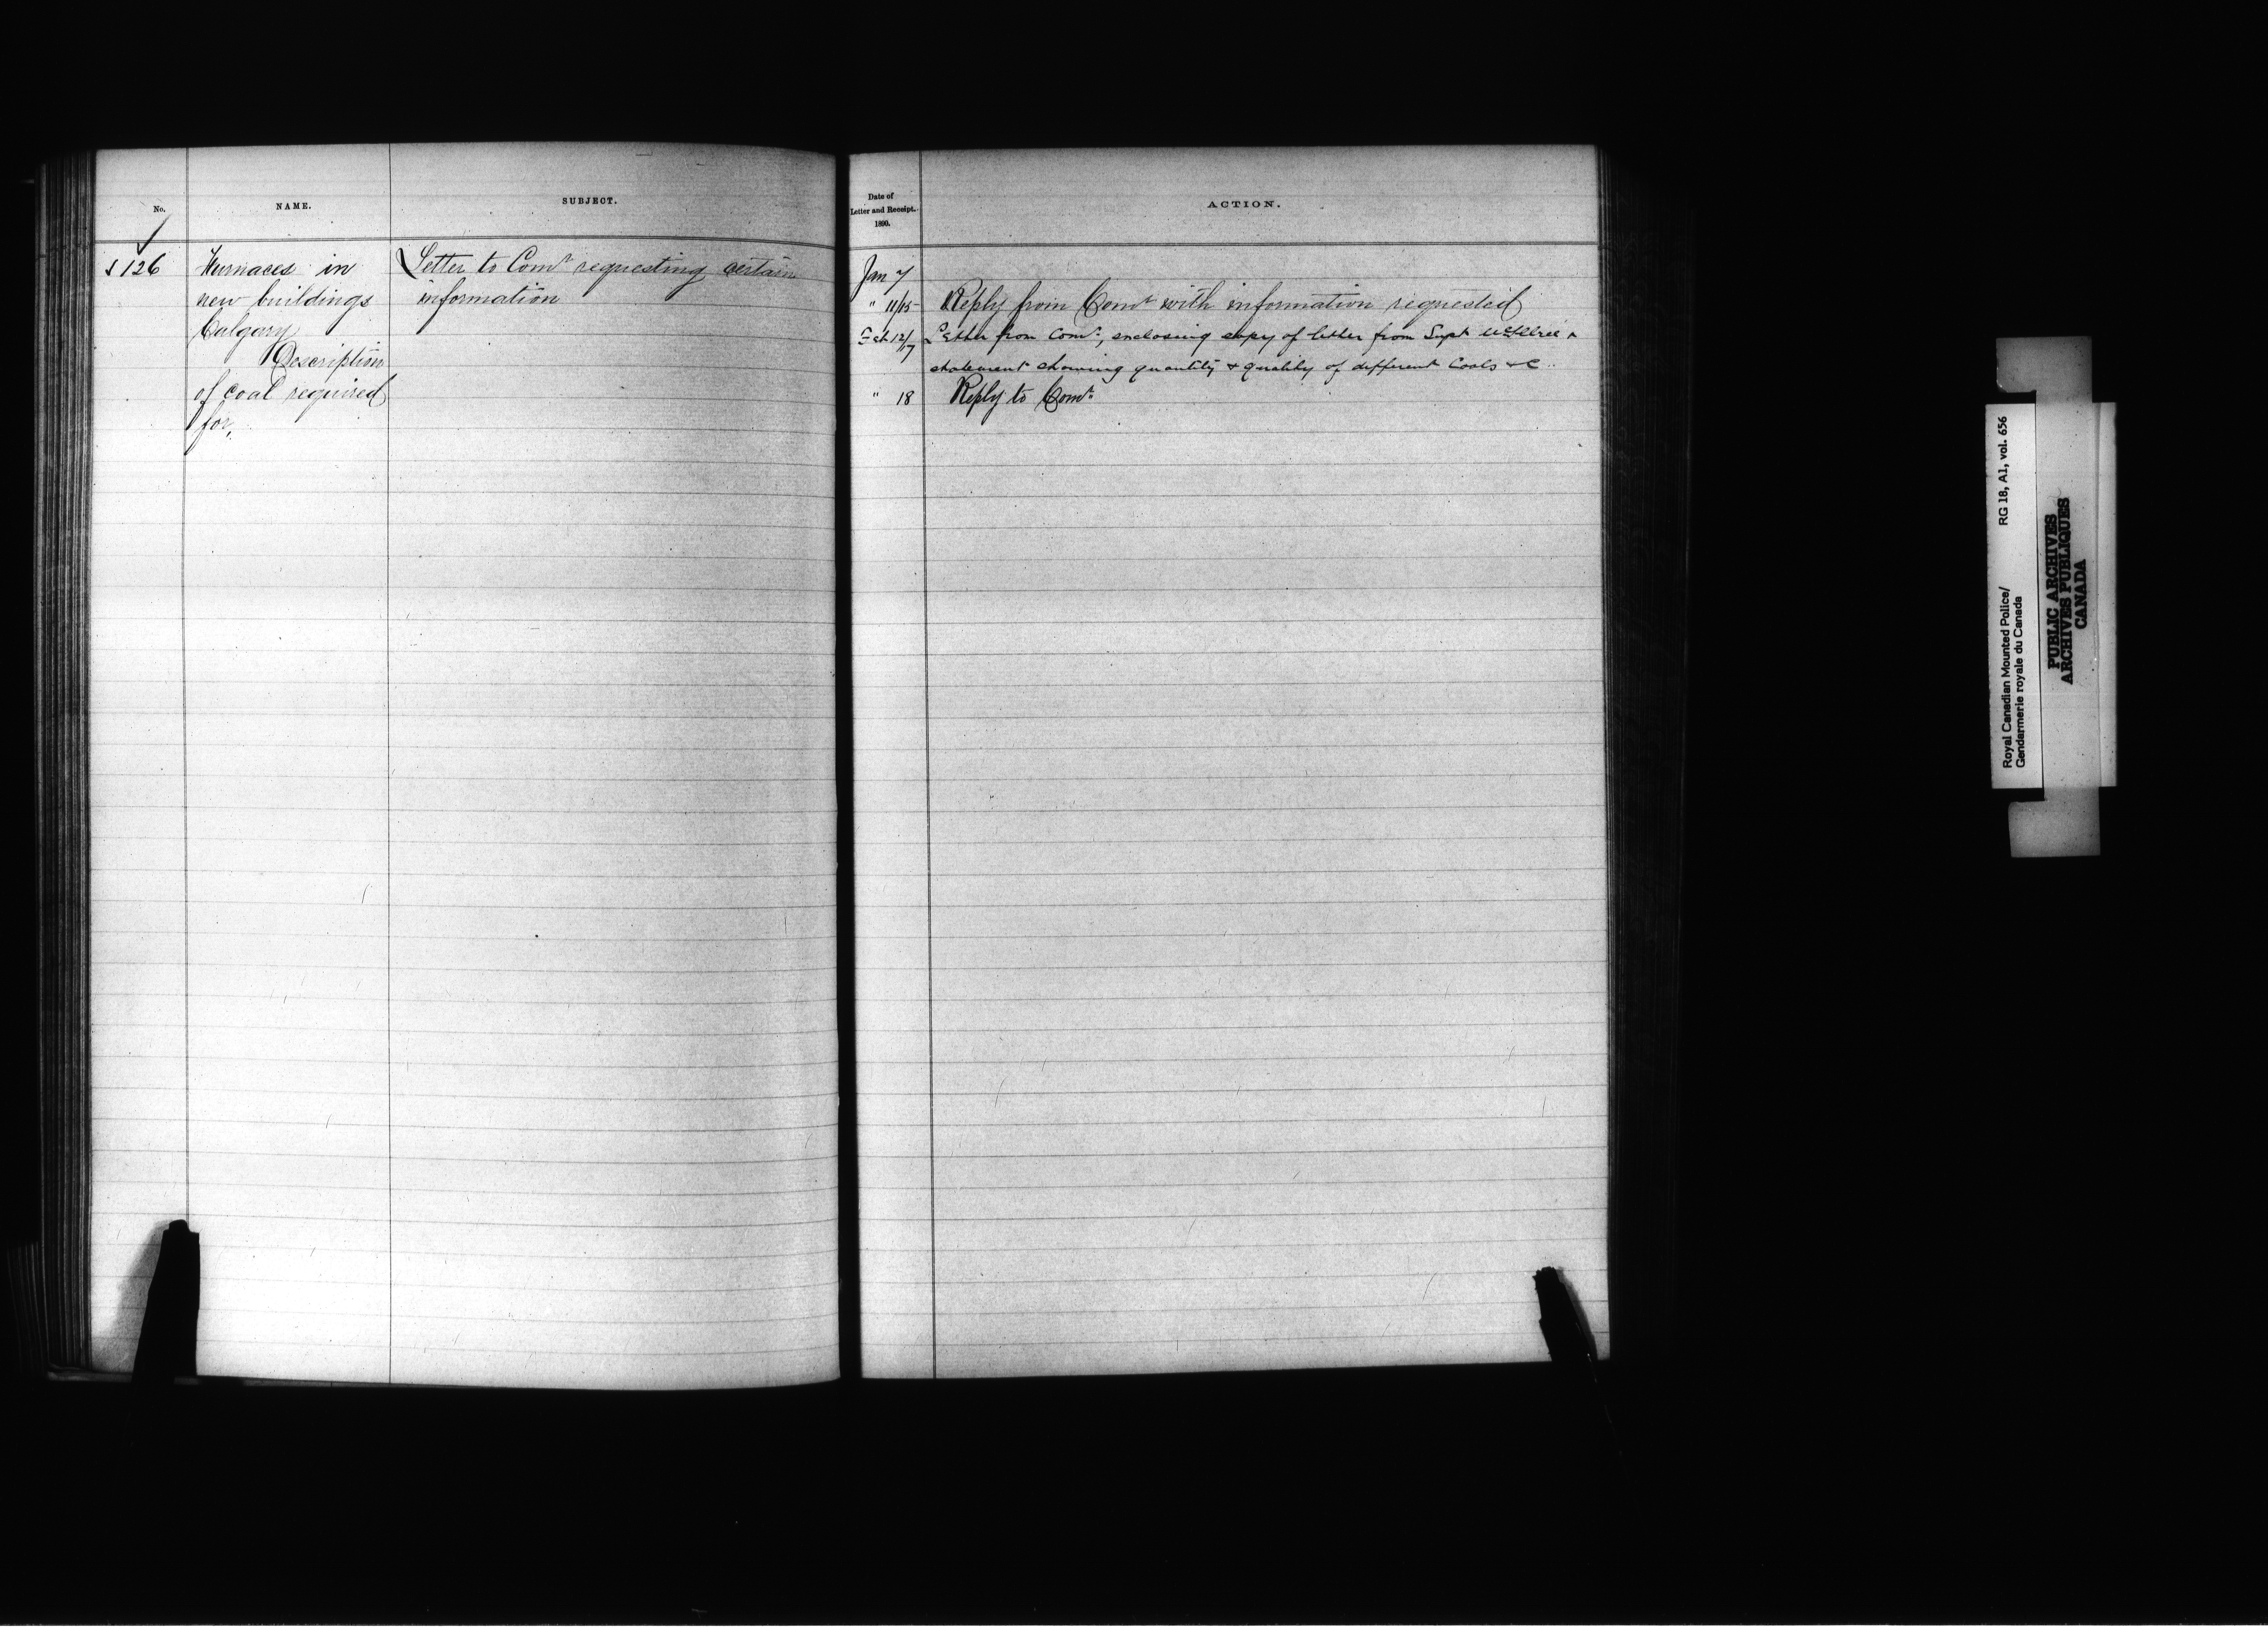 No.
NAME.
SUBJECT.
Date of
Letter and Receipt.
1890.
ACTION.
126
Furnaces in
new buildings
Calgary
Description
of coal required
for.
Letter to Comr requesting certain
information
Jan 7
" 11/15
Reply from Comr with information requested
Feb 12/17
Letter from Comr, enclosing copy of letter from Supt McIllree &
statement showing quantity & quality of different Coals &c.
" 18
Reply to Comr
Royal Canadian Mounted Police/
Gendarmerie royale du Canada
RG 18, A1, vol. 656
PUBLIC ARCHIVES
ARCHIVES PUBLIQUES
CANADA